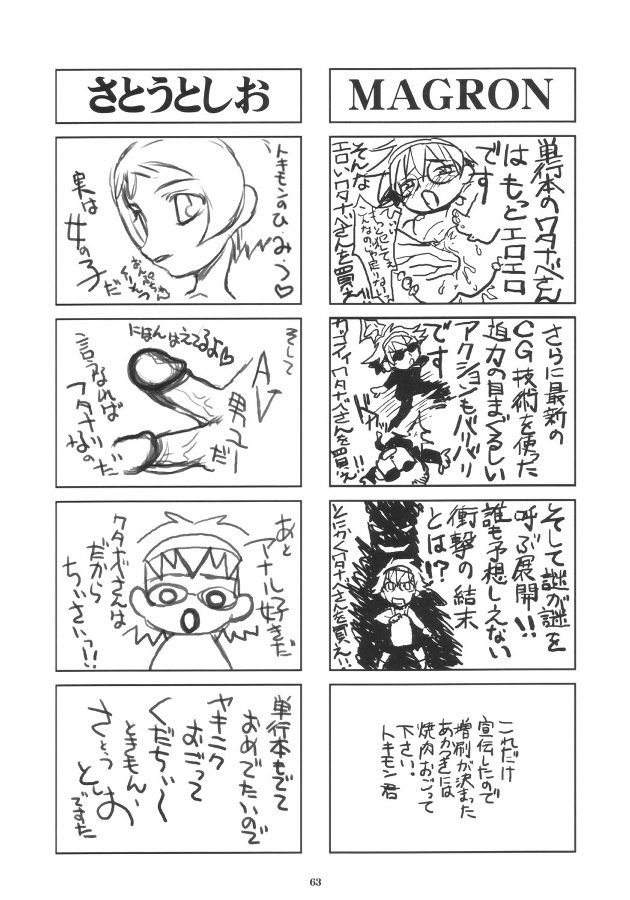 MAGRON
単行本のワタナベさん
はもっとエロエロ
です
そんな
エロいワタナベさんを買え!!
さらに最新の
CG技術を使った
迫力の目まぐるしい
アクションもバリバリ
です
カッコイイワタナベさんを買え!
そして謎が謎を
呼ぶ展開!!
誰も予想しえない
衝撃の結末
とは!?
とにかくワタナベさんを買え!!
これだけ
宣伝したので
増刷が決まった
あかつきには
焼肉おごって
下さい。
トキモン君
さとうとしお
トキモンのひ・み・つ♡
実は
女の子
だ
そして
AV
男ユーだ
にほんはえてるよ♡
言うなれば
フタナリ
なのだ
あと
アナル好きだ
ワタナベさんは
だから
ちいさいっ!!
単行本もでて
おめでたいので
ヤキニク
おごって
くだちぃ〜
ときもん、
さとう
としお
ですた
63